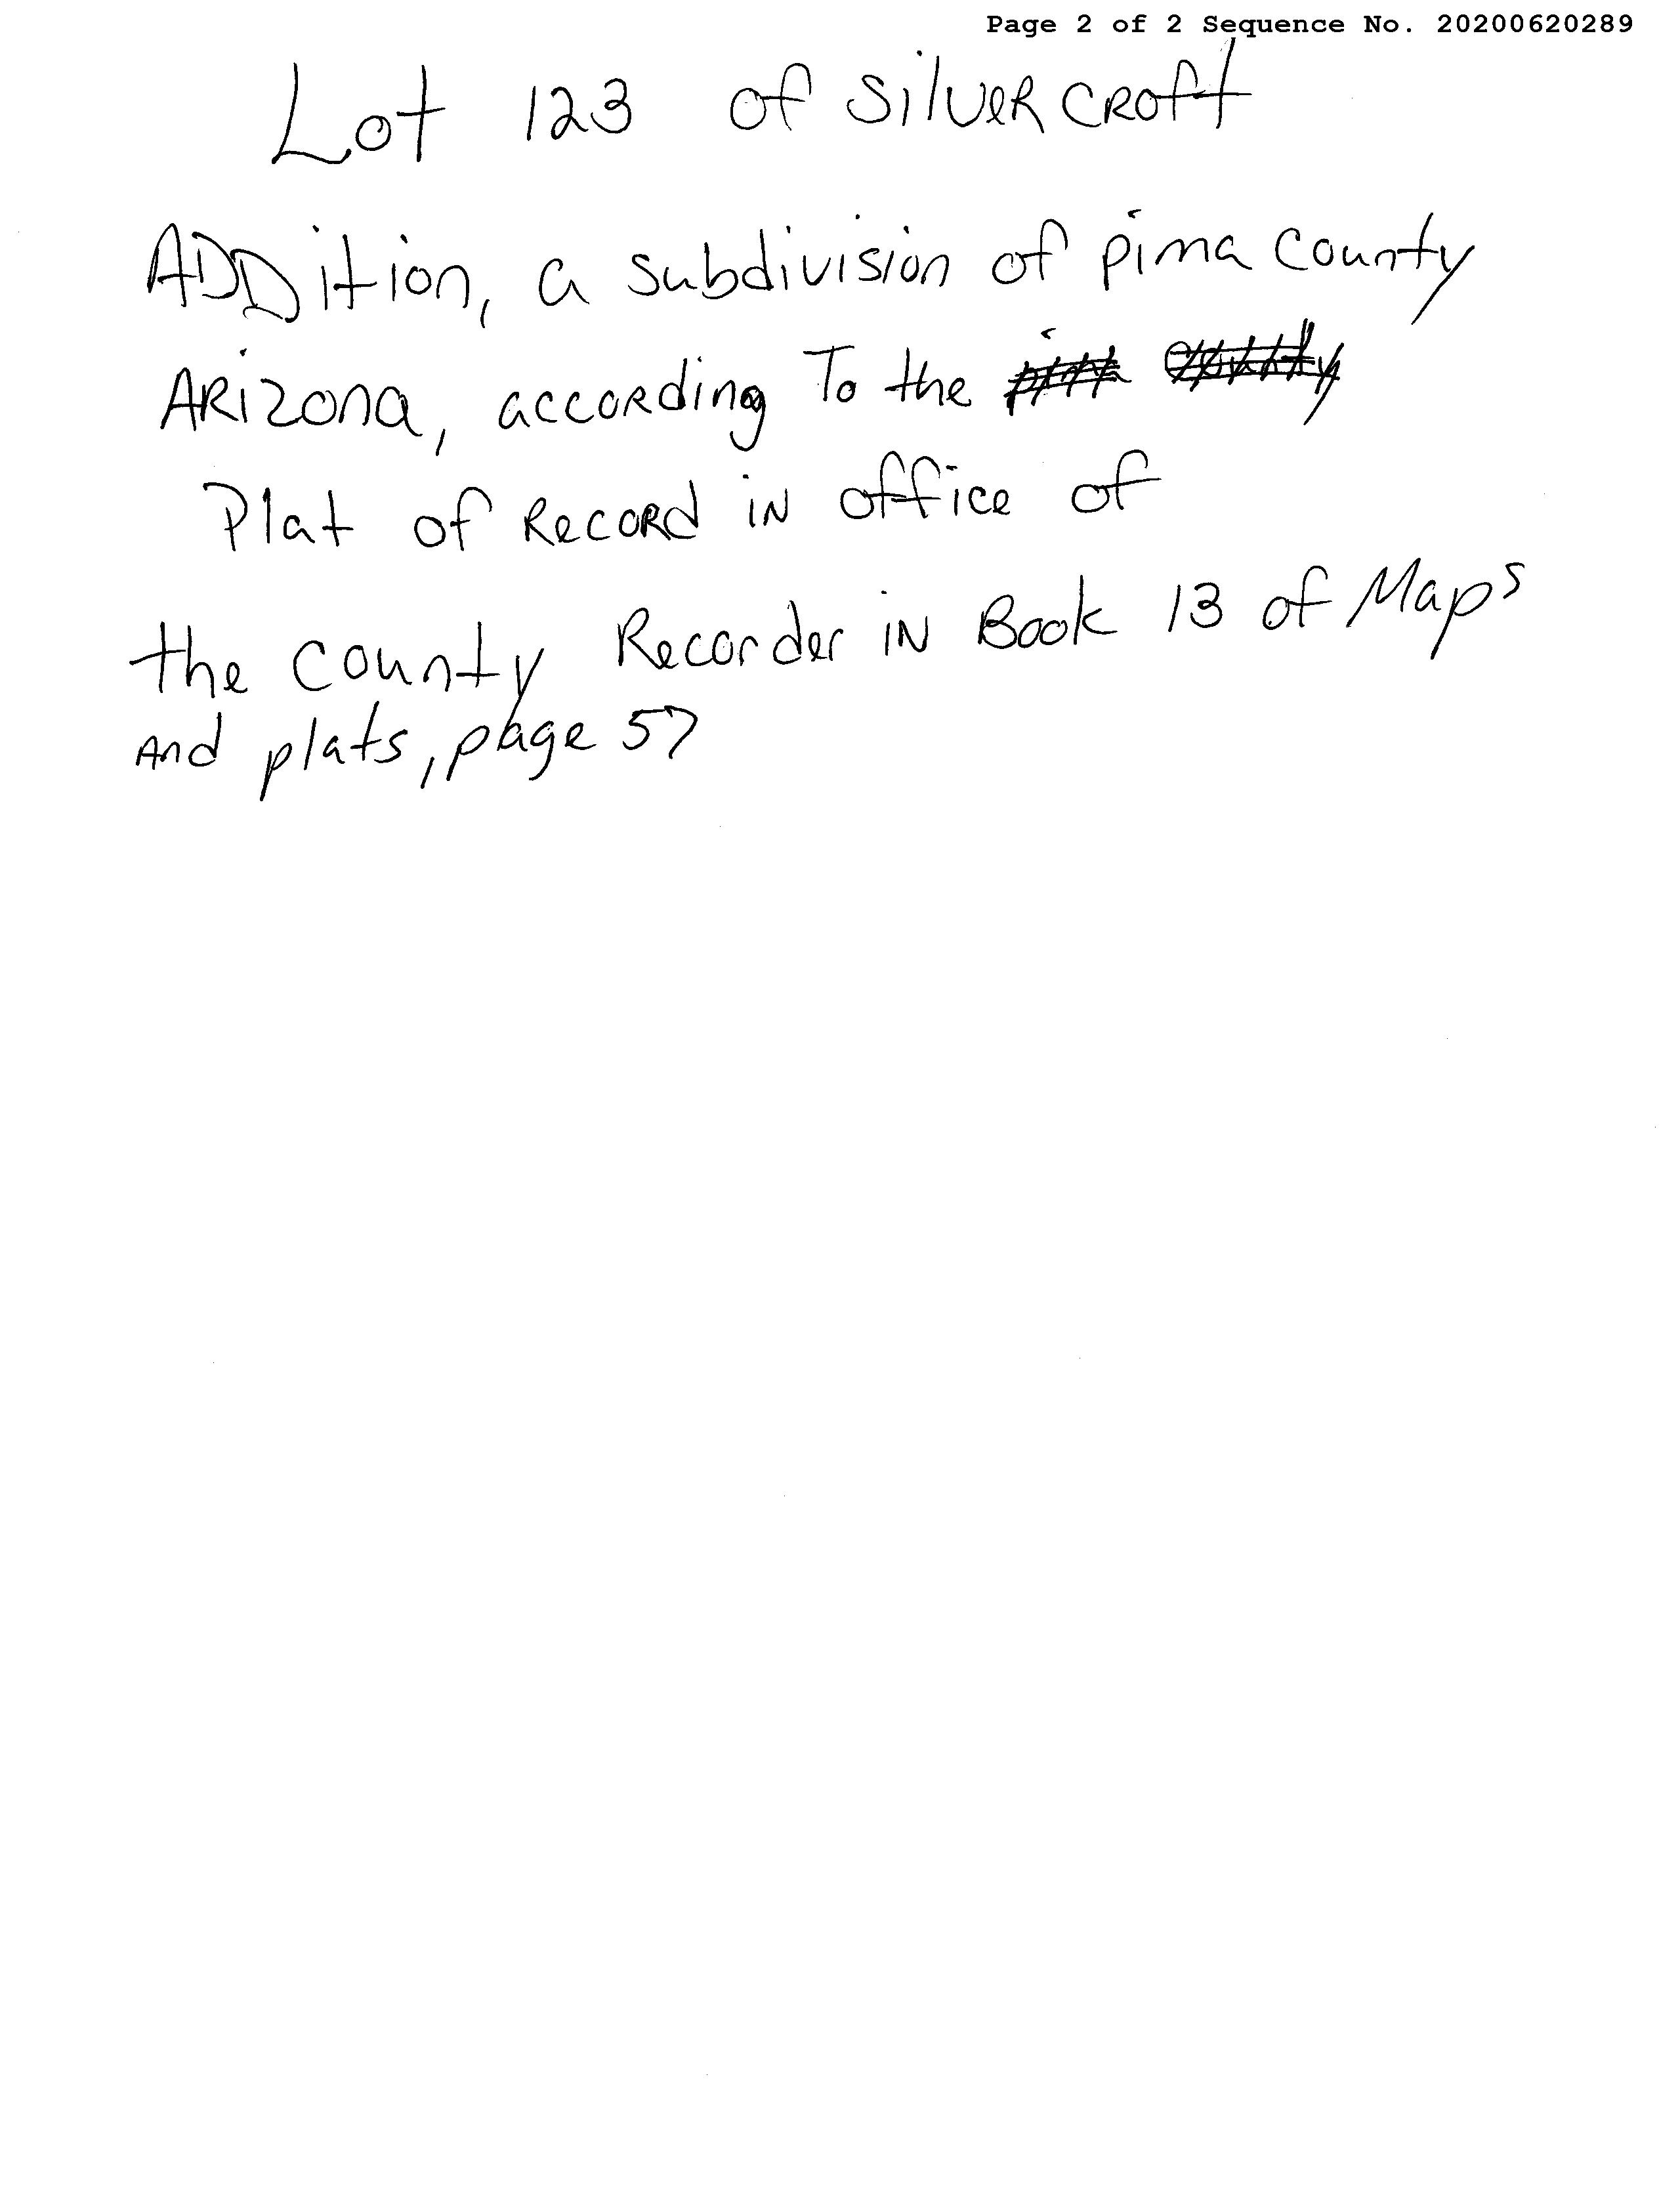 Page 2 of 2 Sequence No. 20200620289
Lot 123 of Silvercroft
ADDition, a subdivision of pima county
ARizona, according To the
Plat of Record in office of
the county Recorder in Book 13 of Maps
And plats, page 57